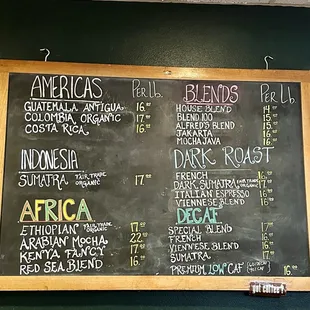 AMERICAS PER LB.
GUATEMALA ANTIGUA, 16.00
COLOMBIA, ORGANIC 17.00
COSTA RICA, 16.00
INDONESIA
SUMATRA FAIR TRADE ORGANIC 17.00
AFRICA
ETHIOPIAN FAIR TRADE ORGANIC 17.00
ARABIAN MOCHA, 22.00
KENYA FANCY 17.00
RED SEA BLEND 16.00
BLENDS PER LB.
HOUSE BLEND 14
BLEND 100 15
ALFRED'S BLEND 15
JAKARTA 16
MOCHA JAVA 16
DARK ROAST
FRENCH 16
DARK, SUMATRA FAIR TRADE ORGANIC 17
ITALIAN ESPRESSO 16
VIENNESE BLEND 16
DECAF
SPECIAL BLEND 17
FRENCH 16
VIENNESE BLEND 17
SUMATRA 17
PREMIUM LOW CAF 16
got coffee?